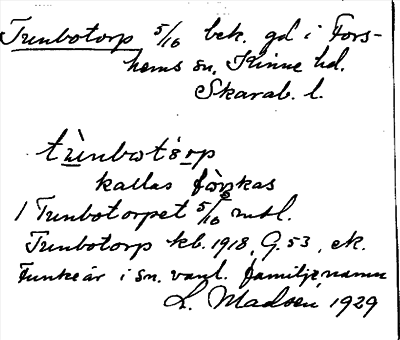 Trunbotorp 5/16 bek. gd i Fors-
hems sn, Kinne hd.
Skarab. l.
kallas
1 Trunbotorpet 5/16 mtl.
Trunbotorp kb. 1918, G. 53, ek.
Funke är i sn. vanl. familjenamn
L. Madsen, 1929